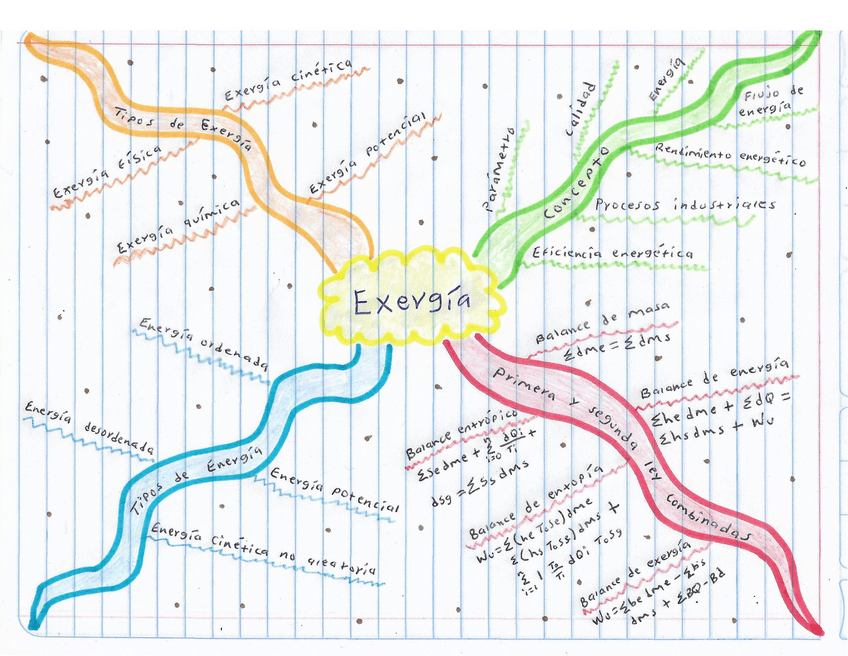 Exergía
Tipos de Exergía
Exergía cinética
Exergía potencial
Exergía física
Exergía química
Concepto
Parámetro
Calidad
Energía
Flujo de
energía
Rendimiento energético
Procesos industriales
Eficiencia energética
Tipos de Energía
Energía ordenada
Energía desordenada
Energía potencial
Energía cinética no aleatoria
Primera y segunda ley combinadas
Balance de masa
Σdme = Σdms
Balance de energía
Σhe dme + ΣdQ =
Σhs dms + Wu
Balance entrópico
ΣSe dme + Σ dQi/Ti +
dSg = ΣSs dms
Balance de entopía
Wu = Σ(he Tose) dme
Σ(hs Toss) dms +
dQi Tosg
Balance de exergía
Wu = Σbe dme - Σbs
dms + ΣBQ - Bd